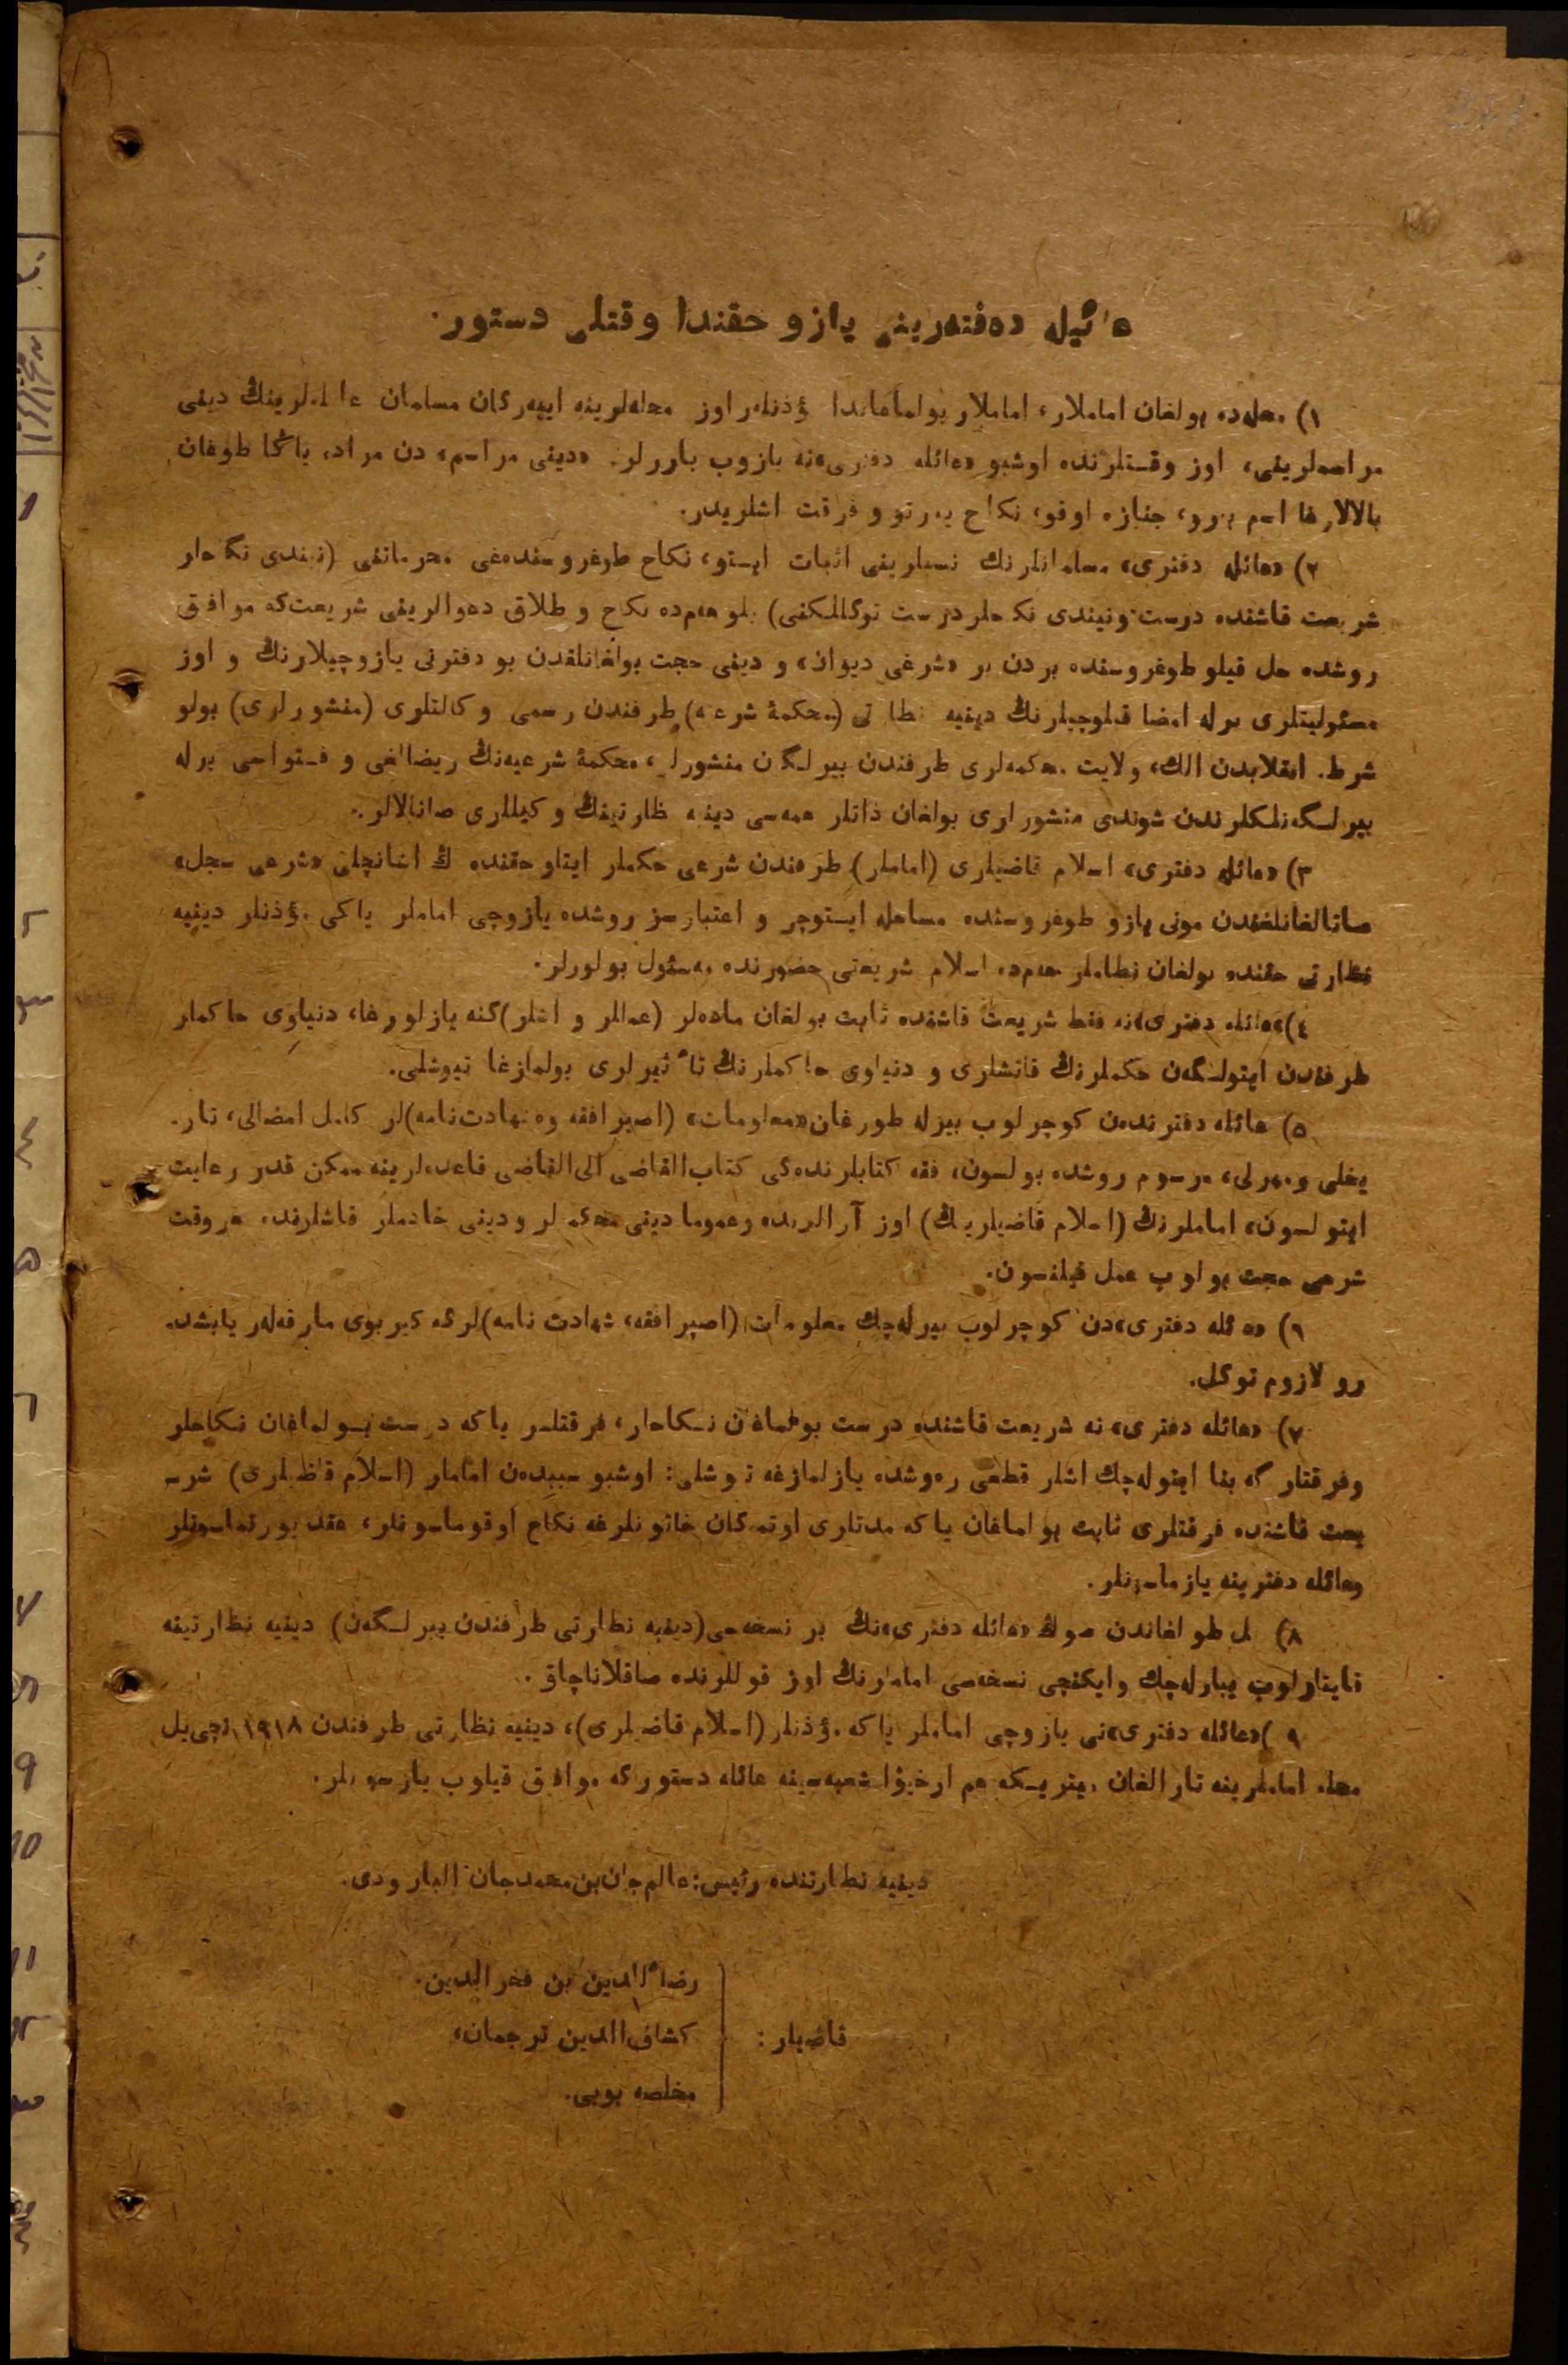 عائیله دەفتەرینی یازو حقندا وقتلی دستور.
١) محلەدە بولغان اماملار، اماملار بولماغاندا مؤذنلەر اوز محلەلرینە اییەرگان مسلمان عائلەلرینڭ دینی
مراسملرینی، اوز وقتلرندە اوشبو «عائلە دفتری»نە یازوب باررلر. «دینی مراسم» دن مراد، یاڭا طوغان
بالالارغا اسم بیرو، جنازە اوقو، نکاح یورتو و فرقت اشلریدر.
٢) «عائلە دفتری» مسلمانلرنڭ نسبلرینی اثبات ایتو، نکاح طوغروسندەغی محرماتنی (نیندی نکاحلر
شریعت قاشندە درست و نیندی نکاحلر درست توگللکنی) بلو هەمدە نکاح و طلاق دعوالرینی شریعت‌کە موافق
روشدە حل قیلو طوغروسندە بردن بر «شرعی دیوان» و دینی حجت بولغانلقدن بو دفترنی یازوچیلارنڭ و اوز
مسئولیتلری برلە امضا قیلوچیلرنڭ دینیە نظارتی (محکمۀ شرعیە) طرفندن رسمی وکالتلری (منشورلری) بولو
شرط. انقلابدن الك، ولایت محکمەلری طرفندن بیرلگان منشورلر، محکمۀ شرعیەنڭ ریضالغی و فتواسی برلە
بیرلگەنلکلرندن شوندی منشورلری بولغان ذاتلر همەسی دینیە نظارتینڭ وکیللری صانالالر.
٣) «عائلە دفتری» اسلام قاضیلری (اماملر) طرفندن شرعی حکملر ایتلو حقندە ڭ اشانچلی «شرعی سجل»
صانالغانلغندن مونی یازو طوغروسندە مساهلە ایتوچر و اعتبارسز روشدە یازوچی اماملر یاکی مؤذنلر دینیە
نظارتی حقندە بولغان نظاملر هەمدە اسلام شریعتی حضورندە مەسئول بولورلر.
٤) «عائلە دفتری»نە فقط شریعت قاشندە ثابت بولغان مادەلر (عمللر و اشلر) گنە یازلورغا، دنیاوی حاکملر
طرفندن ایتولگەن حکملرنڭ قاتشلری و دنیاوی حاکملرنڭ تأثیرلری بولمازغا تیوشلی.
٥) عائلە دفترندەن کوچرلوب بیرلە طورغان «معلومات» (اصپرافقە وە شهادت‌نامە)لر کامل امضالی، تار-
یخلی و مهرلی، مرسوم روشدە بولسون، فقە کتابلرندەگی کتاب القاضی الی القاضی قاعدەلرینە ممکن قدر رعایت
ایتولسون، اماملرنڭ (اسلام قاضیلرینڭ) اوز آرالرندە وعموما دینی محکمەلر و دینی خادملر قاشلرندە هروقت
شرعی حجت بولوب عمل قیلنسون.
٦) «عائلە دفتری»دن کوچرلوب بیرلەچك معلومات (اصپرافقە، شهادت نامە)لرگە گیربوی مارقەلەر یابشد-
رو لازوم توگل.
٧) «عائلە دفتری»نە شریعت قاشندە درست بولماغان نکاحلر، فرقتلر یاکە درست بولماغان نکاحلر
وفرقتلر گە بنا ایتولەچك اشلر قطعی رەوشدە یازلمازغە تیوشلی: اوشبو سببدەن اماملر (اسلام قاضیلری) شر-
یعت قاشندە فرقتلری ثابت بولماغان یاکە مدتلری اوتمەگان خاتونلرغە نکاح اوقوماسونلر، عقد یورتماسونلر
وعائلە دفترینە یازماسونلر.
٨) یل طولغاندن صوڭ «عائلە دفتری»نڭ بر نسخەسی (دینیە نظارتی طرفندن بیرلگەن) دینیە نظارتینە
قایتارلوب یبارلەچك وایکنچی نسخەسی اماملرنڭ اوز قوللرندە صاقلاناچاق.
٩) «عائلە دفتری»نی یازوچی اماملر یاکە مؤذنلر (اسلام قاضیلری)، دینیە نظارتی طرفندن ١٩١٨نچی یل
محلە اماملرینە تارالغان میتریکە هم ارخیوا شعبەسینە عائلە دستورگە موافق قیلوب یازسونلر.
دینیە نظارتندە رئیس: عالم‌جان بن محمدجان البارودی.
رضاءالدین بن فخرالدین.
قاضیلر: کشاف‌الدین ترجمان،
مخلصە بوبی.